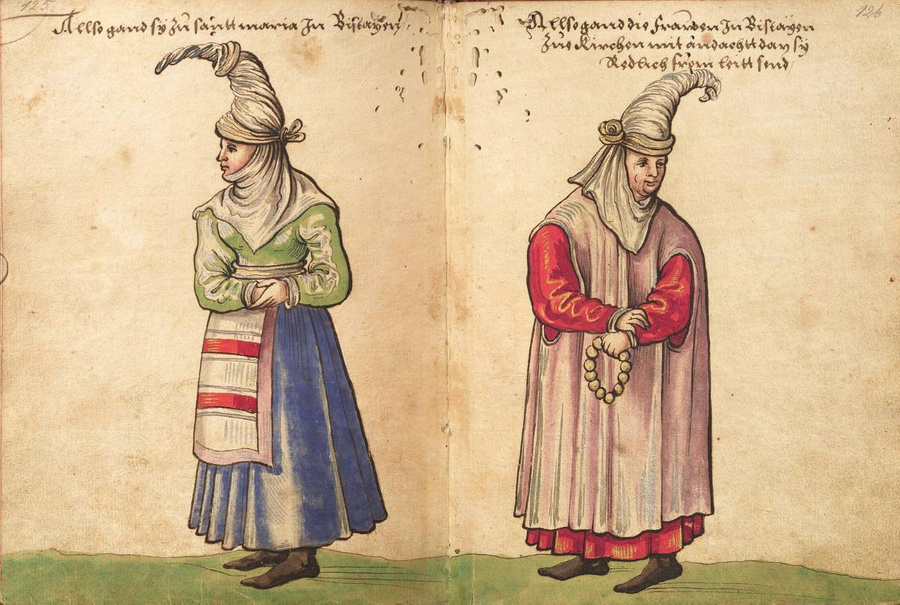 125.
Allso gand sy zu santt maria In Bistayen
126
Allso gand die frawen In Bistayen
Zue Kirchen mit andachtt das sy
Redlich from leitt send